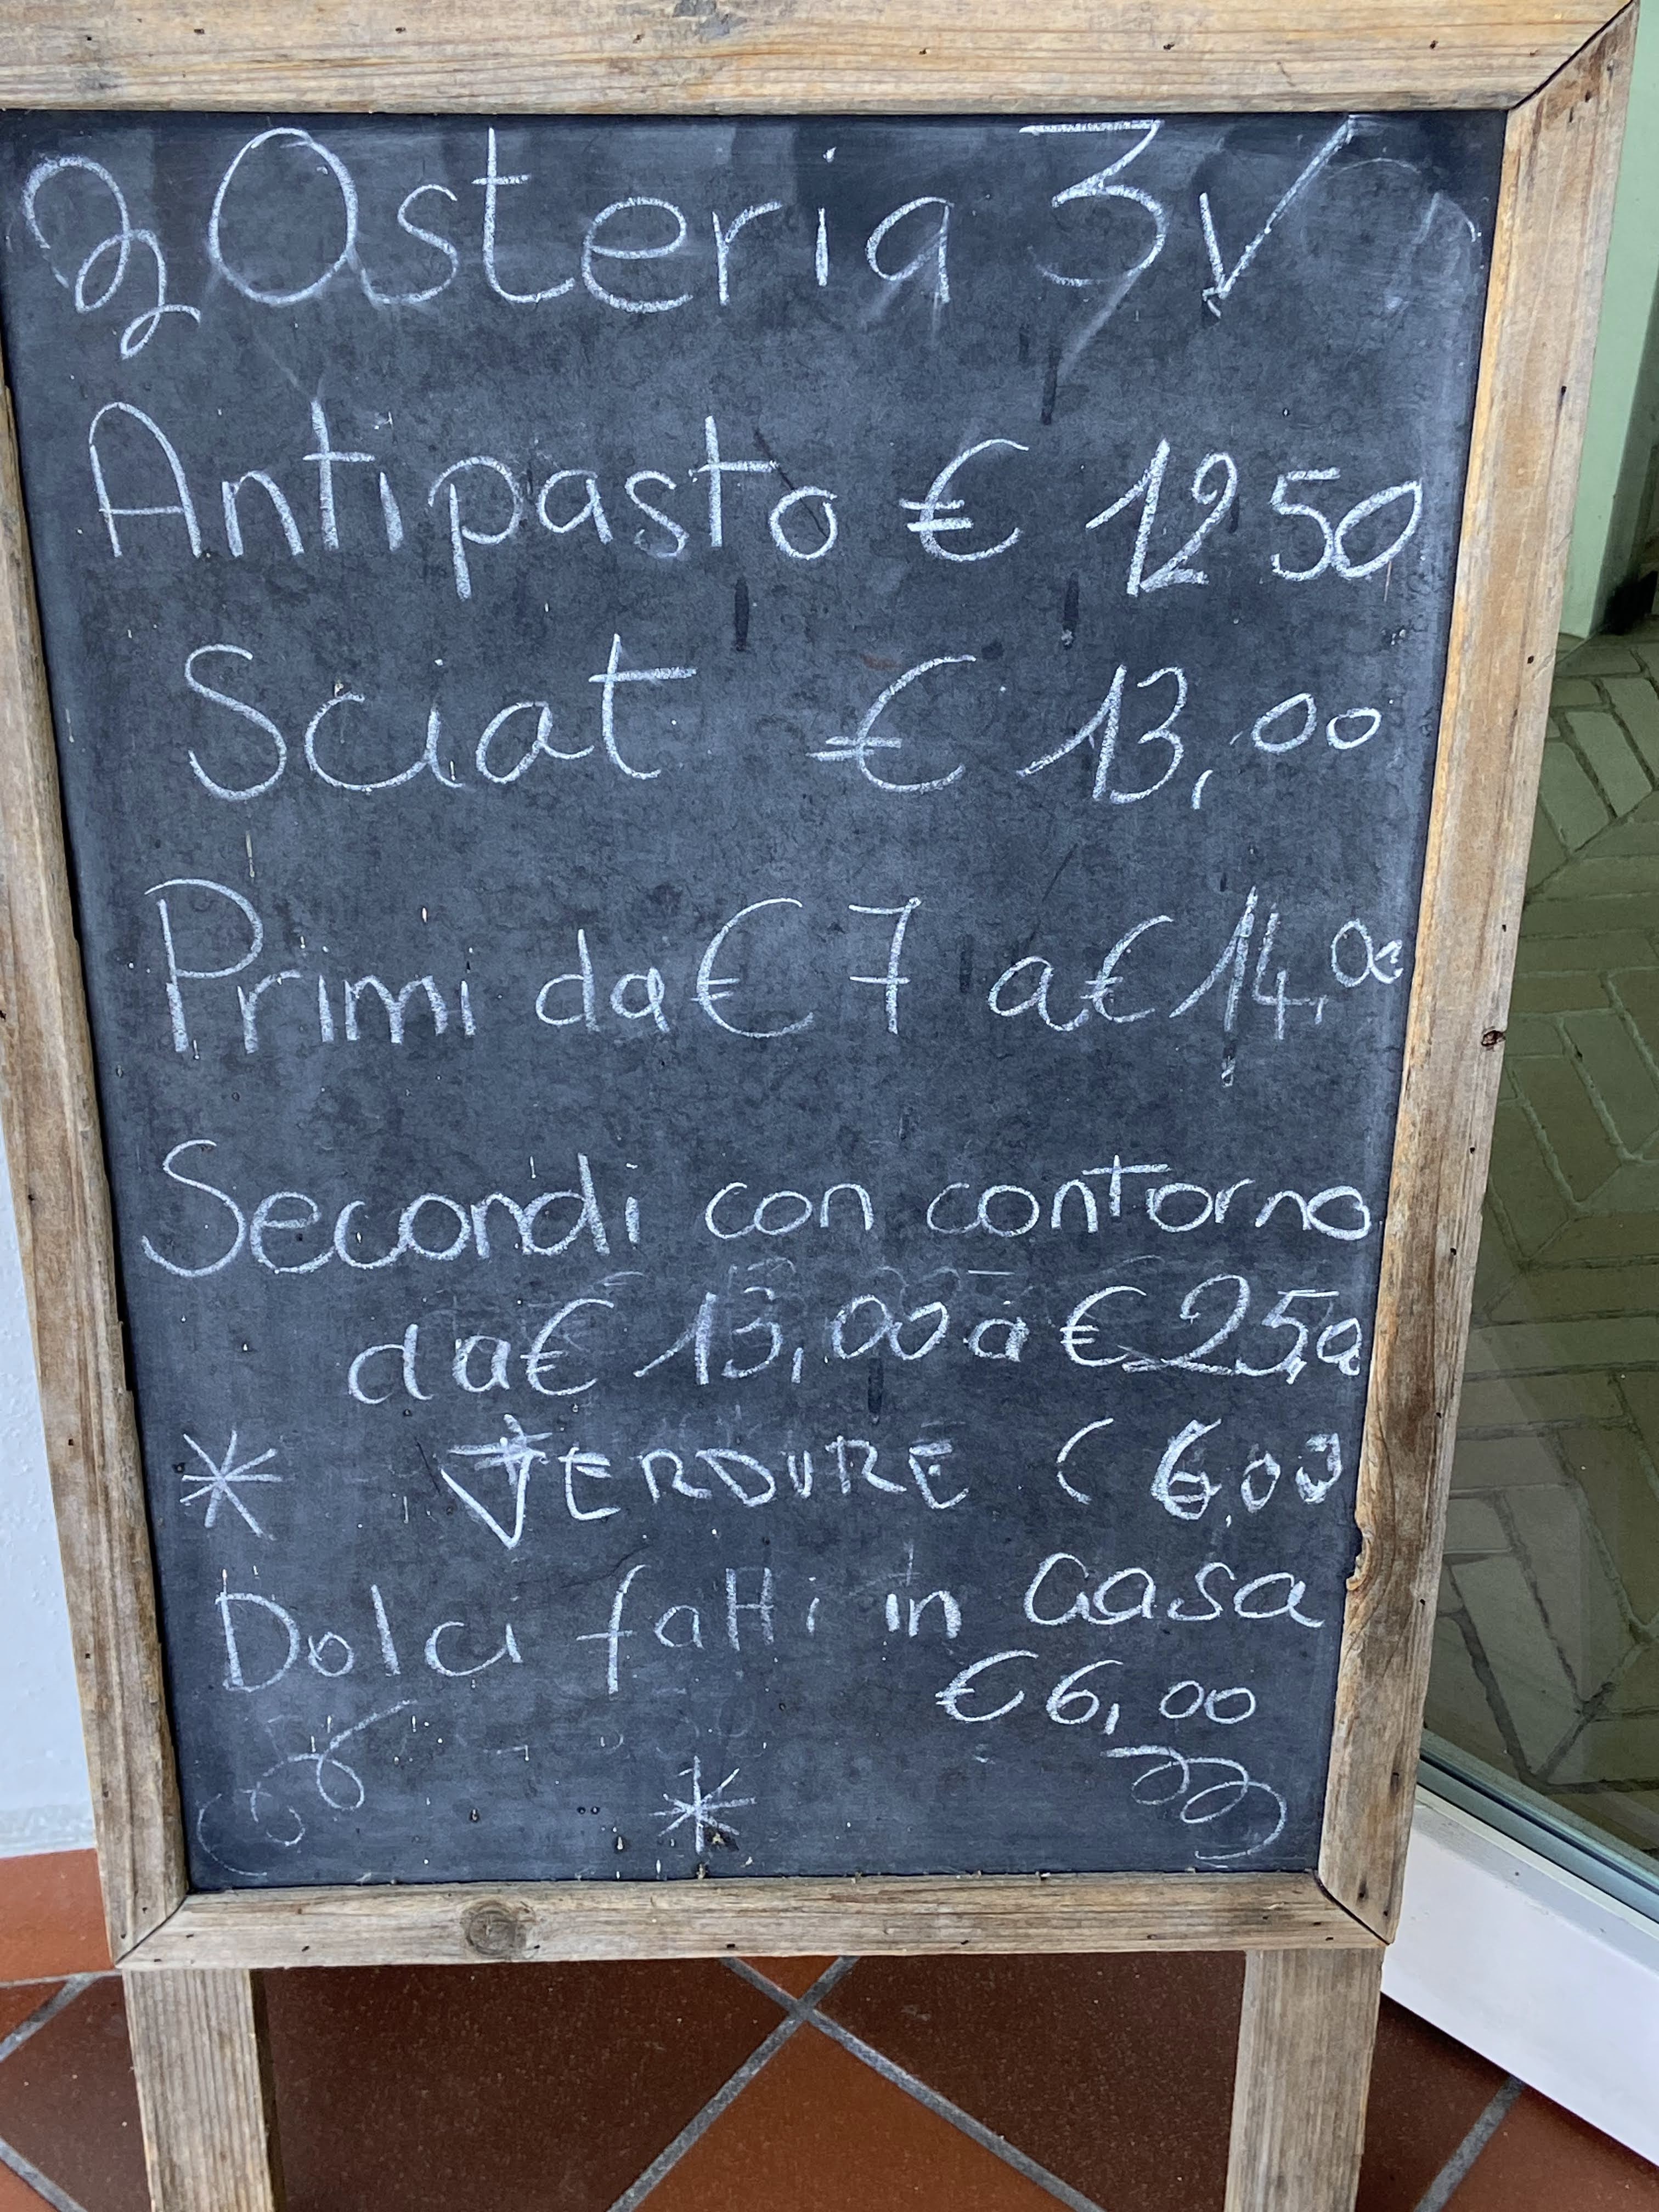 Osteria 3V
Antipasto € 12 50
Sciat € 13,00
Primi da € 7 a € 14,00
Secondi con contorno
da € 13,00 a € 25,00
* VERDURE € 6,00
Dolci fatti in casa
€ 6,00
*